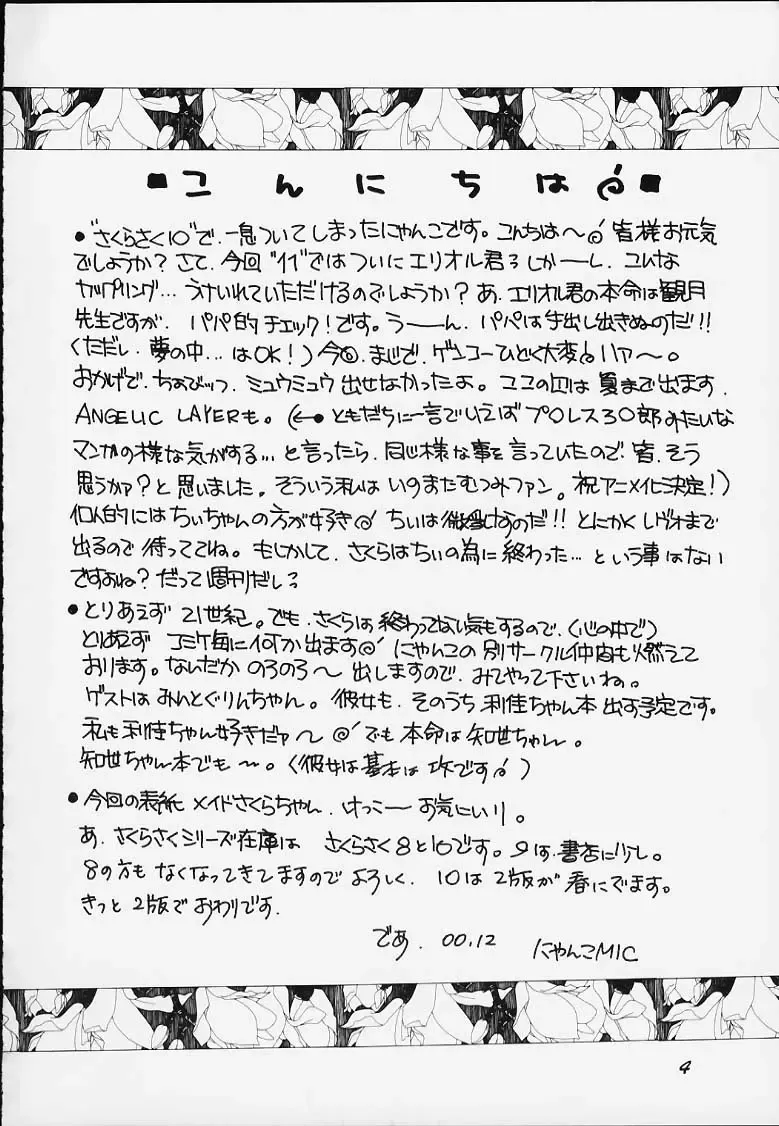 ■こんにちは■
●"さくらさく10"で、一息ついてしまったにゃんこです。こんちは〜 皆様お元気
でしょうか?さて、今回"11"ではついにエリオル君 しかーーし、こんな
カップリング…うけいれていただけるのでしょうか?あ、エリオル君の本命は観月
先生ですが、パパ的チェック!です。うーーん、パパは手出し出きぬのだ!!
(ただし、夢の中…はOK!)今回、まじで、ゲンコーひどく大変 ハァ〜。
おかげで、ちょびッツ、ミュウミュウ出せなかったよ。ココの は夏まで出ます、
ANGELIC LAYERも。(←●ともだちに一言でいえばプロレス30郎みたいな
マンガの様な気がする…と言ったら、同じ様な事を言っていたので、皆、そう
思うかァ?と思いました。そういう私はいのまたむつみファン。祝アニメイヒ決定!)
個人的にはちぃちゃんの方が好き ちぃは なのだ!!とにかくレヴォまで
出るので待っててね。もしかして、さくらはちぃの為に終わった…という事はない
ですよね?だって週刊だし
●とりあえず21世紀。でも、さくらは終わってない気もするので、(心の中で)
とりあえずコミケ毎に何か出ます にゃんこの別サークル仲間も燃えて
おります。なんだかのろのろ〜出しますので、みてやって下さいね。
ゲストはみんとぐりんちゃん。彼女も、そのうち利佳ちゃん本出す予定です。
私も利佳ちゃん好きだァ〜 でも本命は知世ちゃん。
知世ちゃん本でも〜。(彼女は基本は攻です)
●今回の表紙メイドさくらちゃん、けっこーお気にいり。
あ、さくらさくシリーズ在庫は さくらさく8と10です。9は、書店に少し。
8の方もなくなってきてますのでよろしく、10は2版が春にでます。
きっと2版でおわりです.
であ、00.12 にゃんこMIC
4